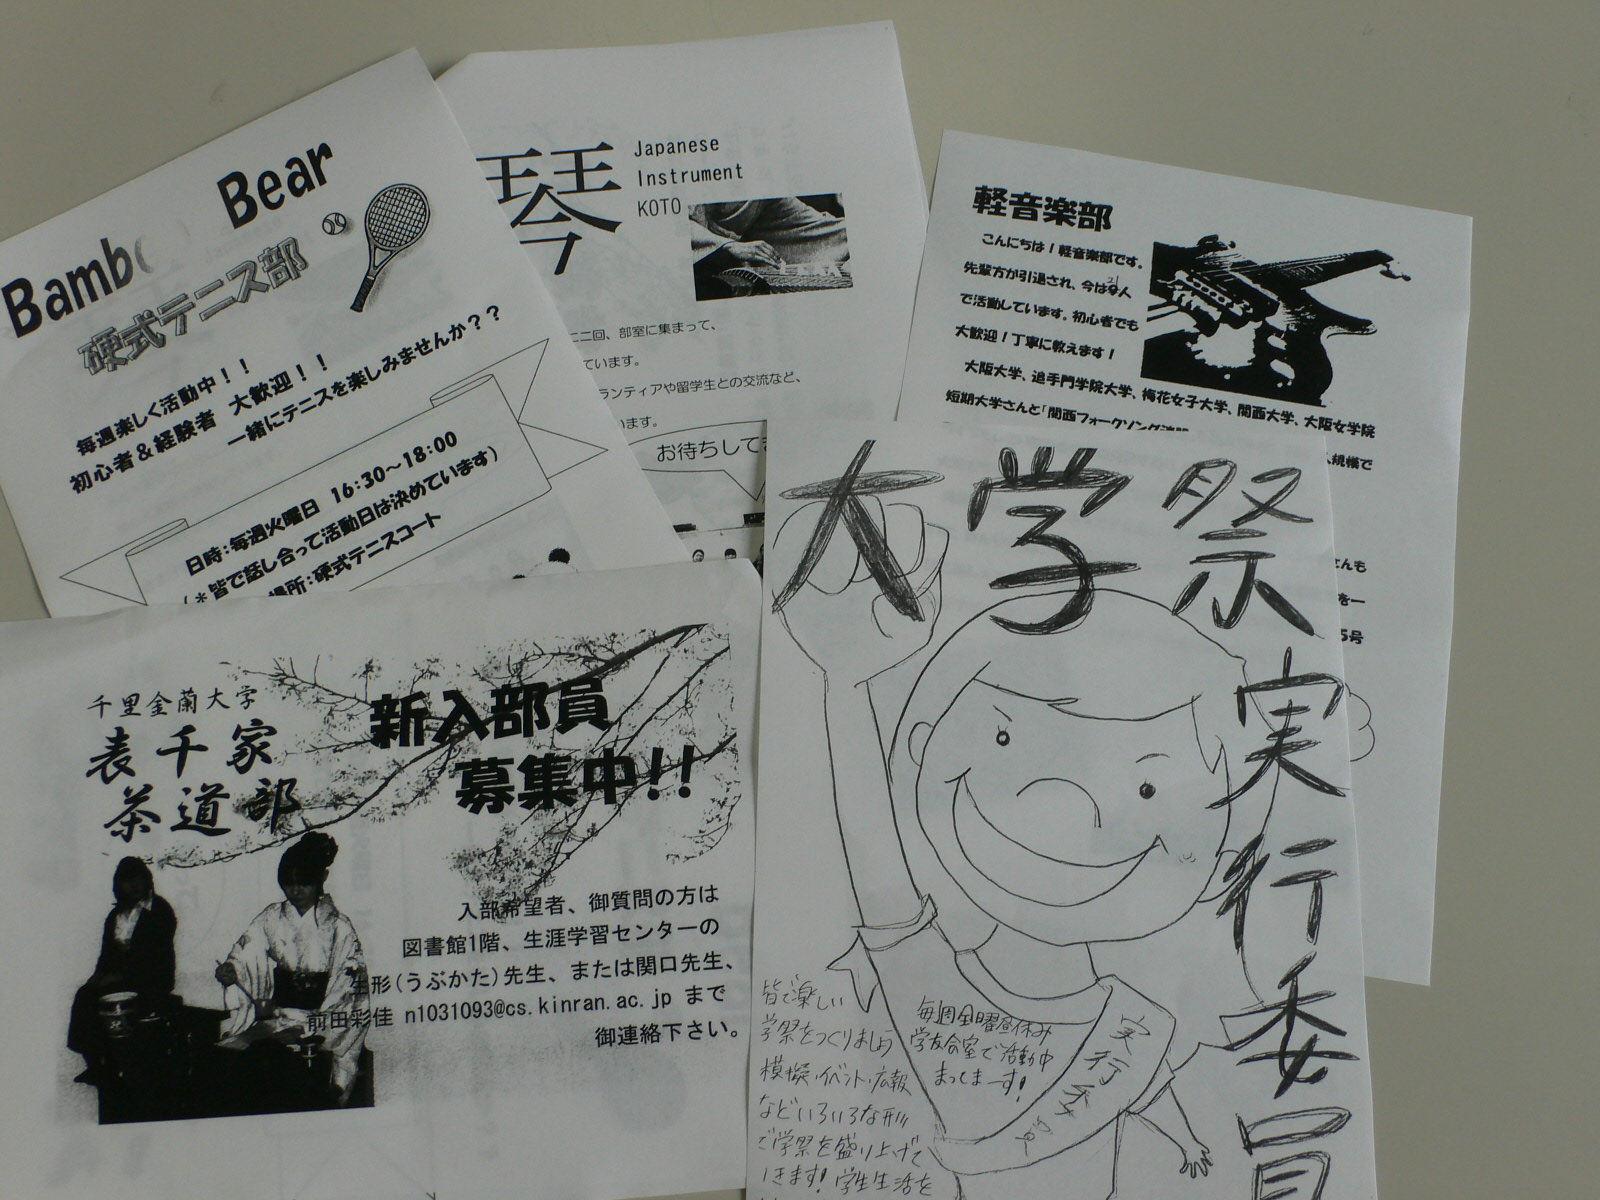 Bamb Bear
硬式テニス部
毎週楽しく活動中！！
初心者＆経験者 大歓迎！！
一緒にテニスを楽しみませんか？？
日時：毎週火曜日 16:30～18:00
(＊皆で話し合って活動日は決めています)
場所：硬式テニスコート
琴
Japanese
Instrument
KOTO
二回、部室に集まって、
ています。
ランティアや留学生との交流など、
います。
お待ちして
軽音楽部
こんにちは！軽音楽部です。
先輩方が引退され、今は21人
で活動しています。初心者でも
大歓迎！丁寧に教えます！
大阪大学、追手門学院大学、梅花女子大学、関西大学、大阪女学院
短期大学さんと「関西フォークソング連盟
規模で
さんも
を一
5号
千里金蘭大学
表千家
茶道部
新入部員
募集中!!
入部希望者、御質問の方は
図書館1階、生涯学習センターの
生形(うぶかた)先生、または関口先生、
前田彩佳 n1031093@cs.kinran.ac.jp まで
御連絡下さい。
大学祭
実行委員
皆で楽しい
学祭をつくりましょう
模擬・イベント・広報
などいろいろな形
で学祭を盛り上げて
いきます! 学生生活を
毎週金曜昼休み
学友会室で活動中
まってまーす!
実行委員